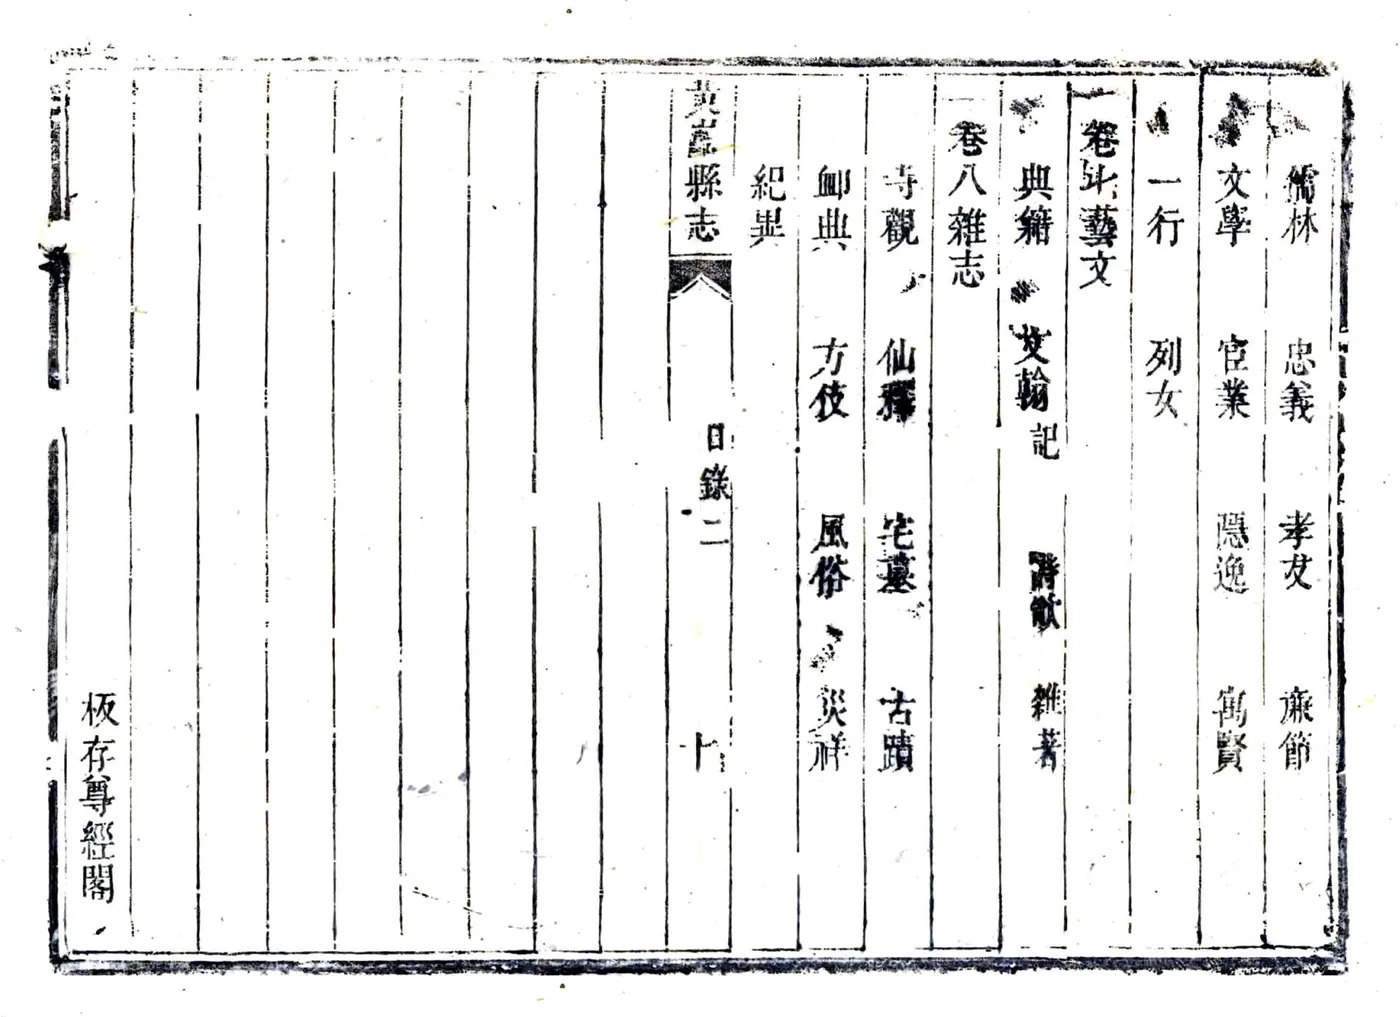 儒林　忠義　孝友　廉節
文學　宦業　隱逸　寓賢
一行　列女
卷七藝文
典籍　文翰記　詩歌　雜著
卷八雜志
寺觀　仙釋　宅墓　古蹟
卹典　方伎　風俗　災祥
紀異
黃巖縣志　目錄二　十
板存尊經閣